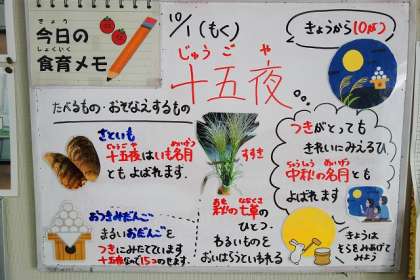 きょう
今日の
しょくいく
食育メモ
10/1(もく)
きょうから10がつ
じゅうごや
十五夜...
たべるもの・おそなえするもの
さといも
じゅうごや めいげつ
十五夜はいも名月
ともよばれます。
すすき
あき ななくさ
秋の七草の
ひとつ。
わるいものを
おいはらうといわれる
つきがとっても
きれいにみえるひ
ちゅうしゅう めいげつ
中秋の名月とも
よばれます
おつきみだんご
まるいおだんごを
つきにみたてています
十五夜なので15このせます。
きょうは
そらをみあげて
みよう